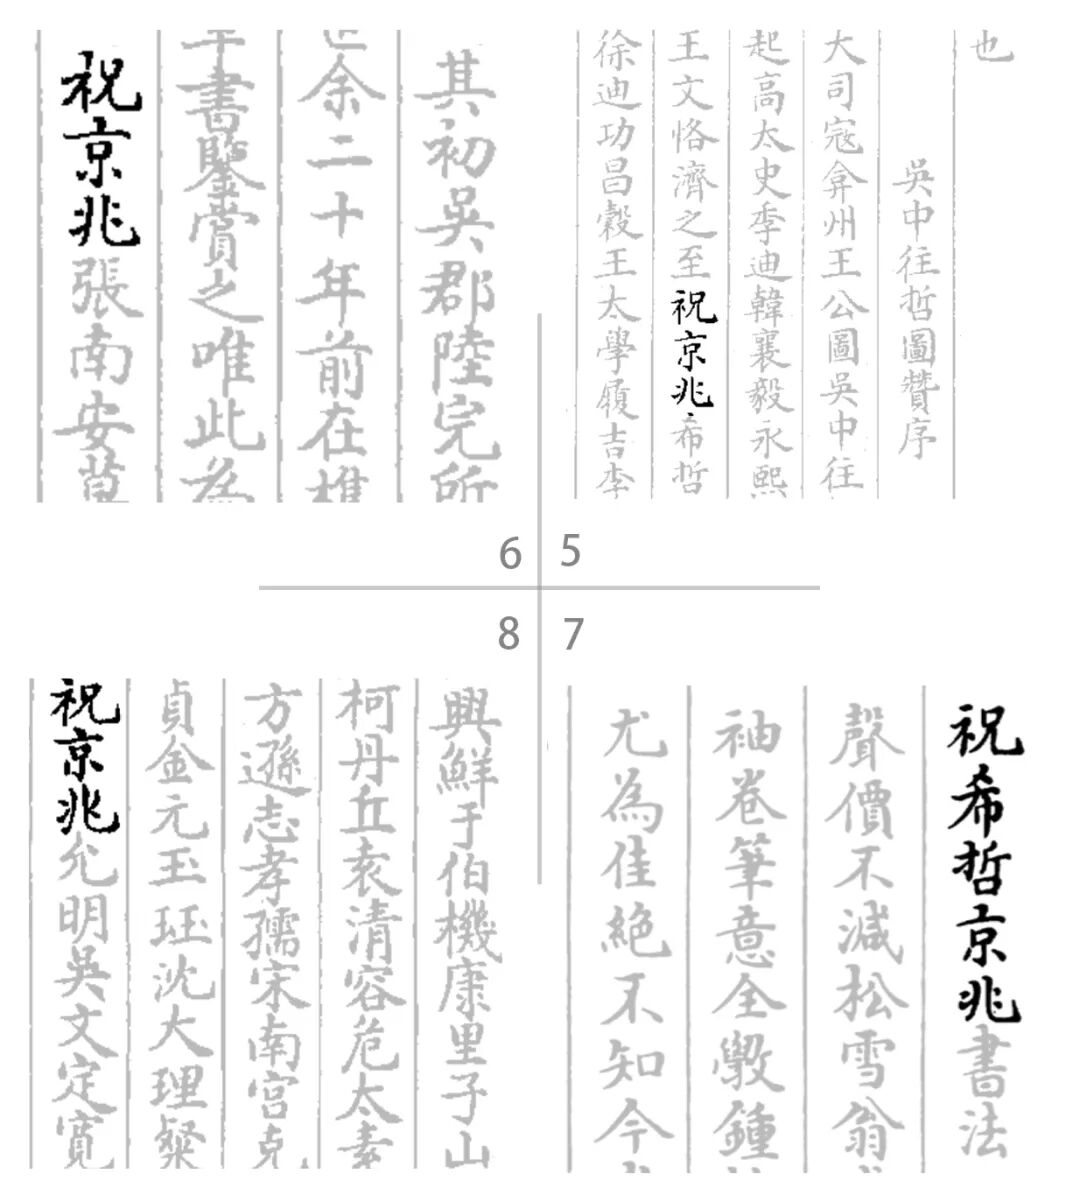 也
吳中往哲圖贊序
大司寇弇州王公圖吳中往
起高太史季迪韓襄毅永熙
王文恪濟之至祝京兆希哲
徐迪功昌穀王太學履吉李
5
其初吳郡陸完所
余二十年前在樵
書鑒賞之唯此為
祝京兆張南安
6
祝希哲京兆書法
聲價不減松雪翁
袖卷筆意全斅鍾
尤為佳絕不知今
7
興鮮于伯機康里子山
柯丹丘袁清容危太素
方遜志孝孺宋南宮克
貞金元玉珏沈大理粲
祝京兆允明吳文定寬
8